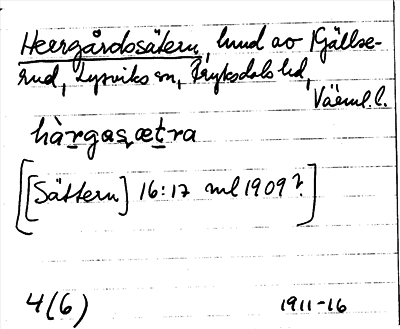 Heergårdssätern, lund av Gällse-
rud, Lysviks sn, Fryksdals hd,
Värml. l.
hàrgasætra
[[Sättern] 16:17 ml 1909?]
4(6) 1911-16